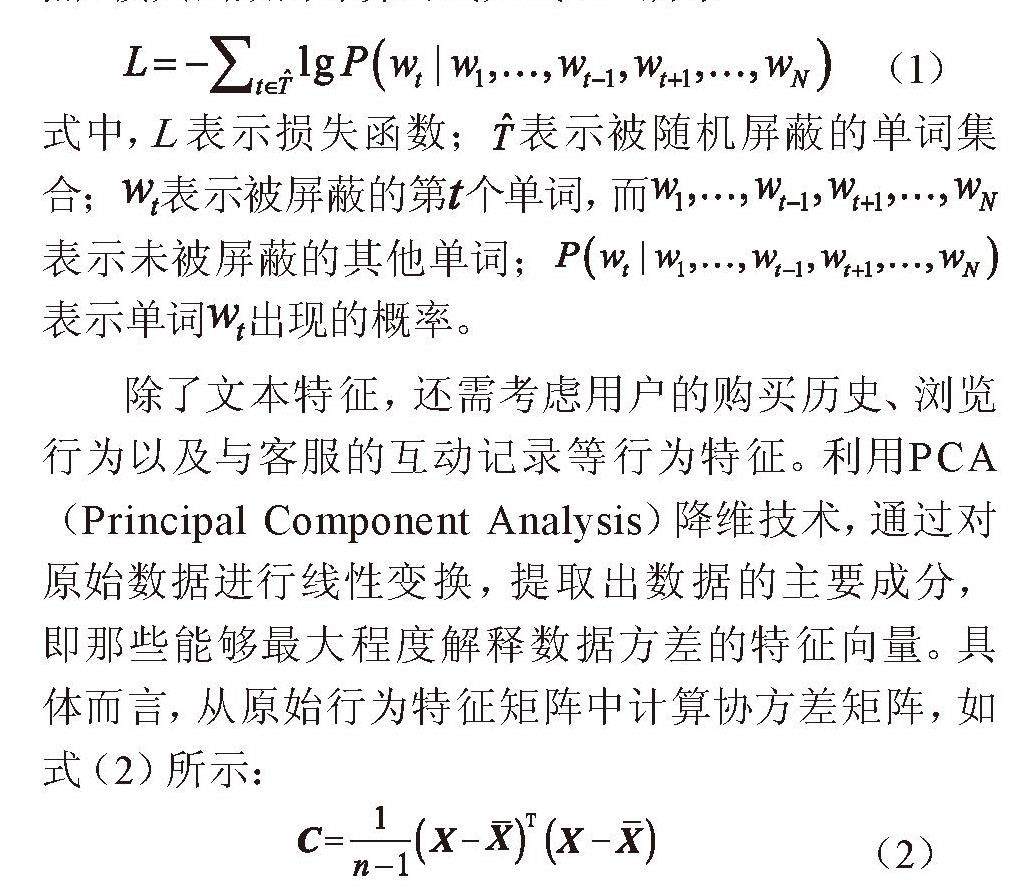 L=−∑_{t∈T̂} lg P(w_t | w_1,…,w_{t−1},w_{t+1},…,w_N) （1）
式中，L 表示损失函数；T̂ 表示被随机屏蔽的单词集
合；w_t表示被屏蔽的第t个单词，而w_1,…,w_{t−1},w_{t+1},…,w_N
表示未被屏蔽的其他单词；P(w_t | w_1,…,w_{t−1},w_{t+1},…,w_N)
表示单词w_t出现的概率。
除了文本特征，还需考虑用户的购买历史、浏览
行为以及与客服的互动记录等行为特征。利用PCA
（Principal Component Analysis）降维技术，通过对
原始数据进行线性变换，提取出数据的主要成分，
即那些能够最大程度解释数据方差的特征向量。具
体而言，从原始行为特征矩阵中计算协方差矩阵，如
式（2）所示：
C=\frac{1}{n−1}(X−X̄)^T(X−X̄) （2）